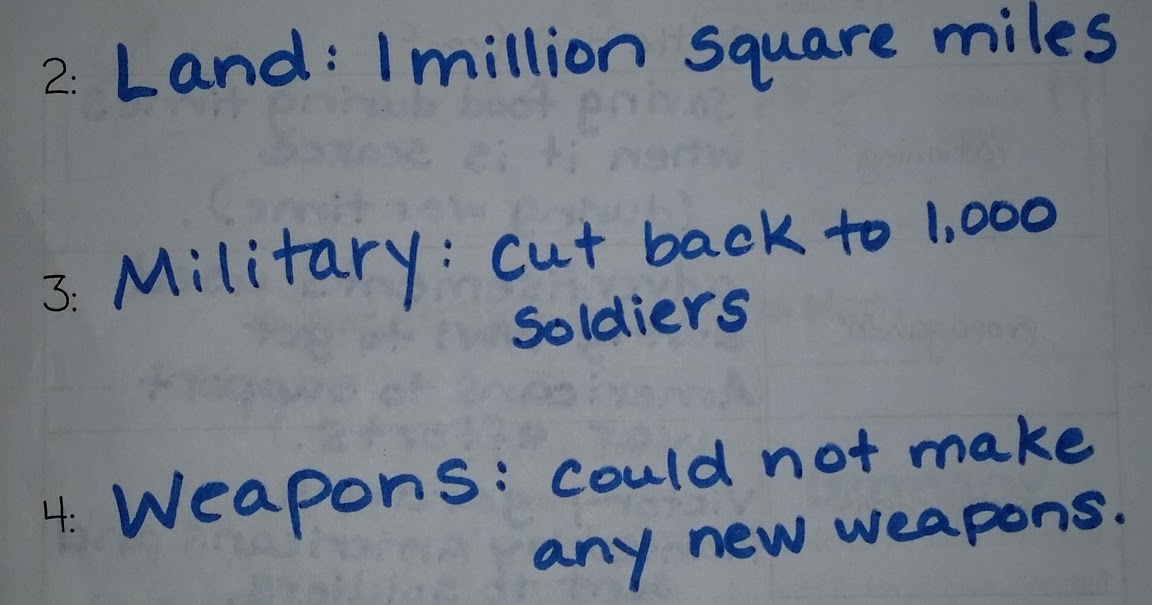 2: Land: 1 million square miles
3: Military: cut back to 1,000
soldiers
4: Weapons: could not make
any new weapons.